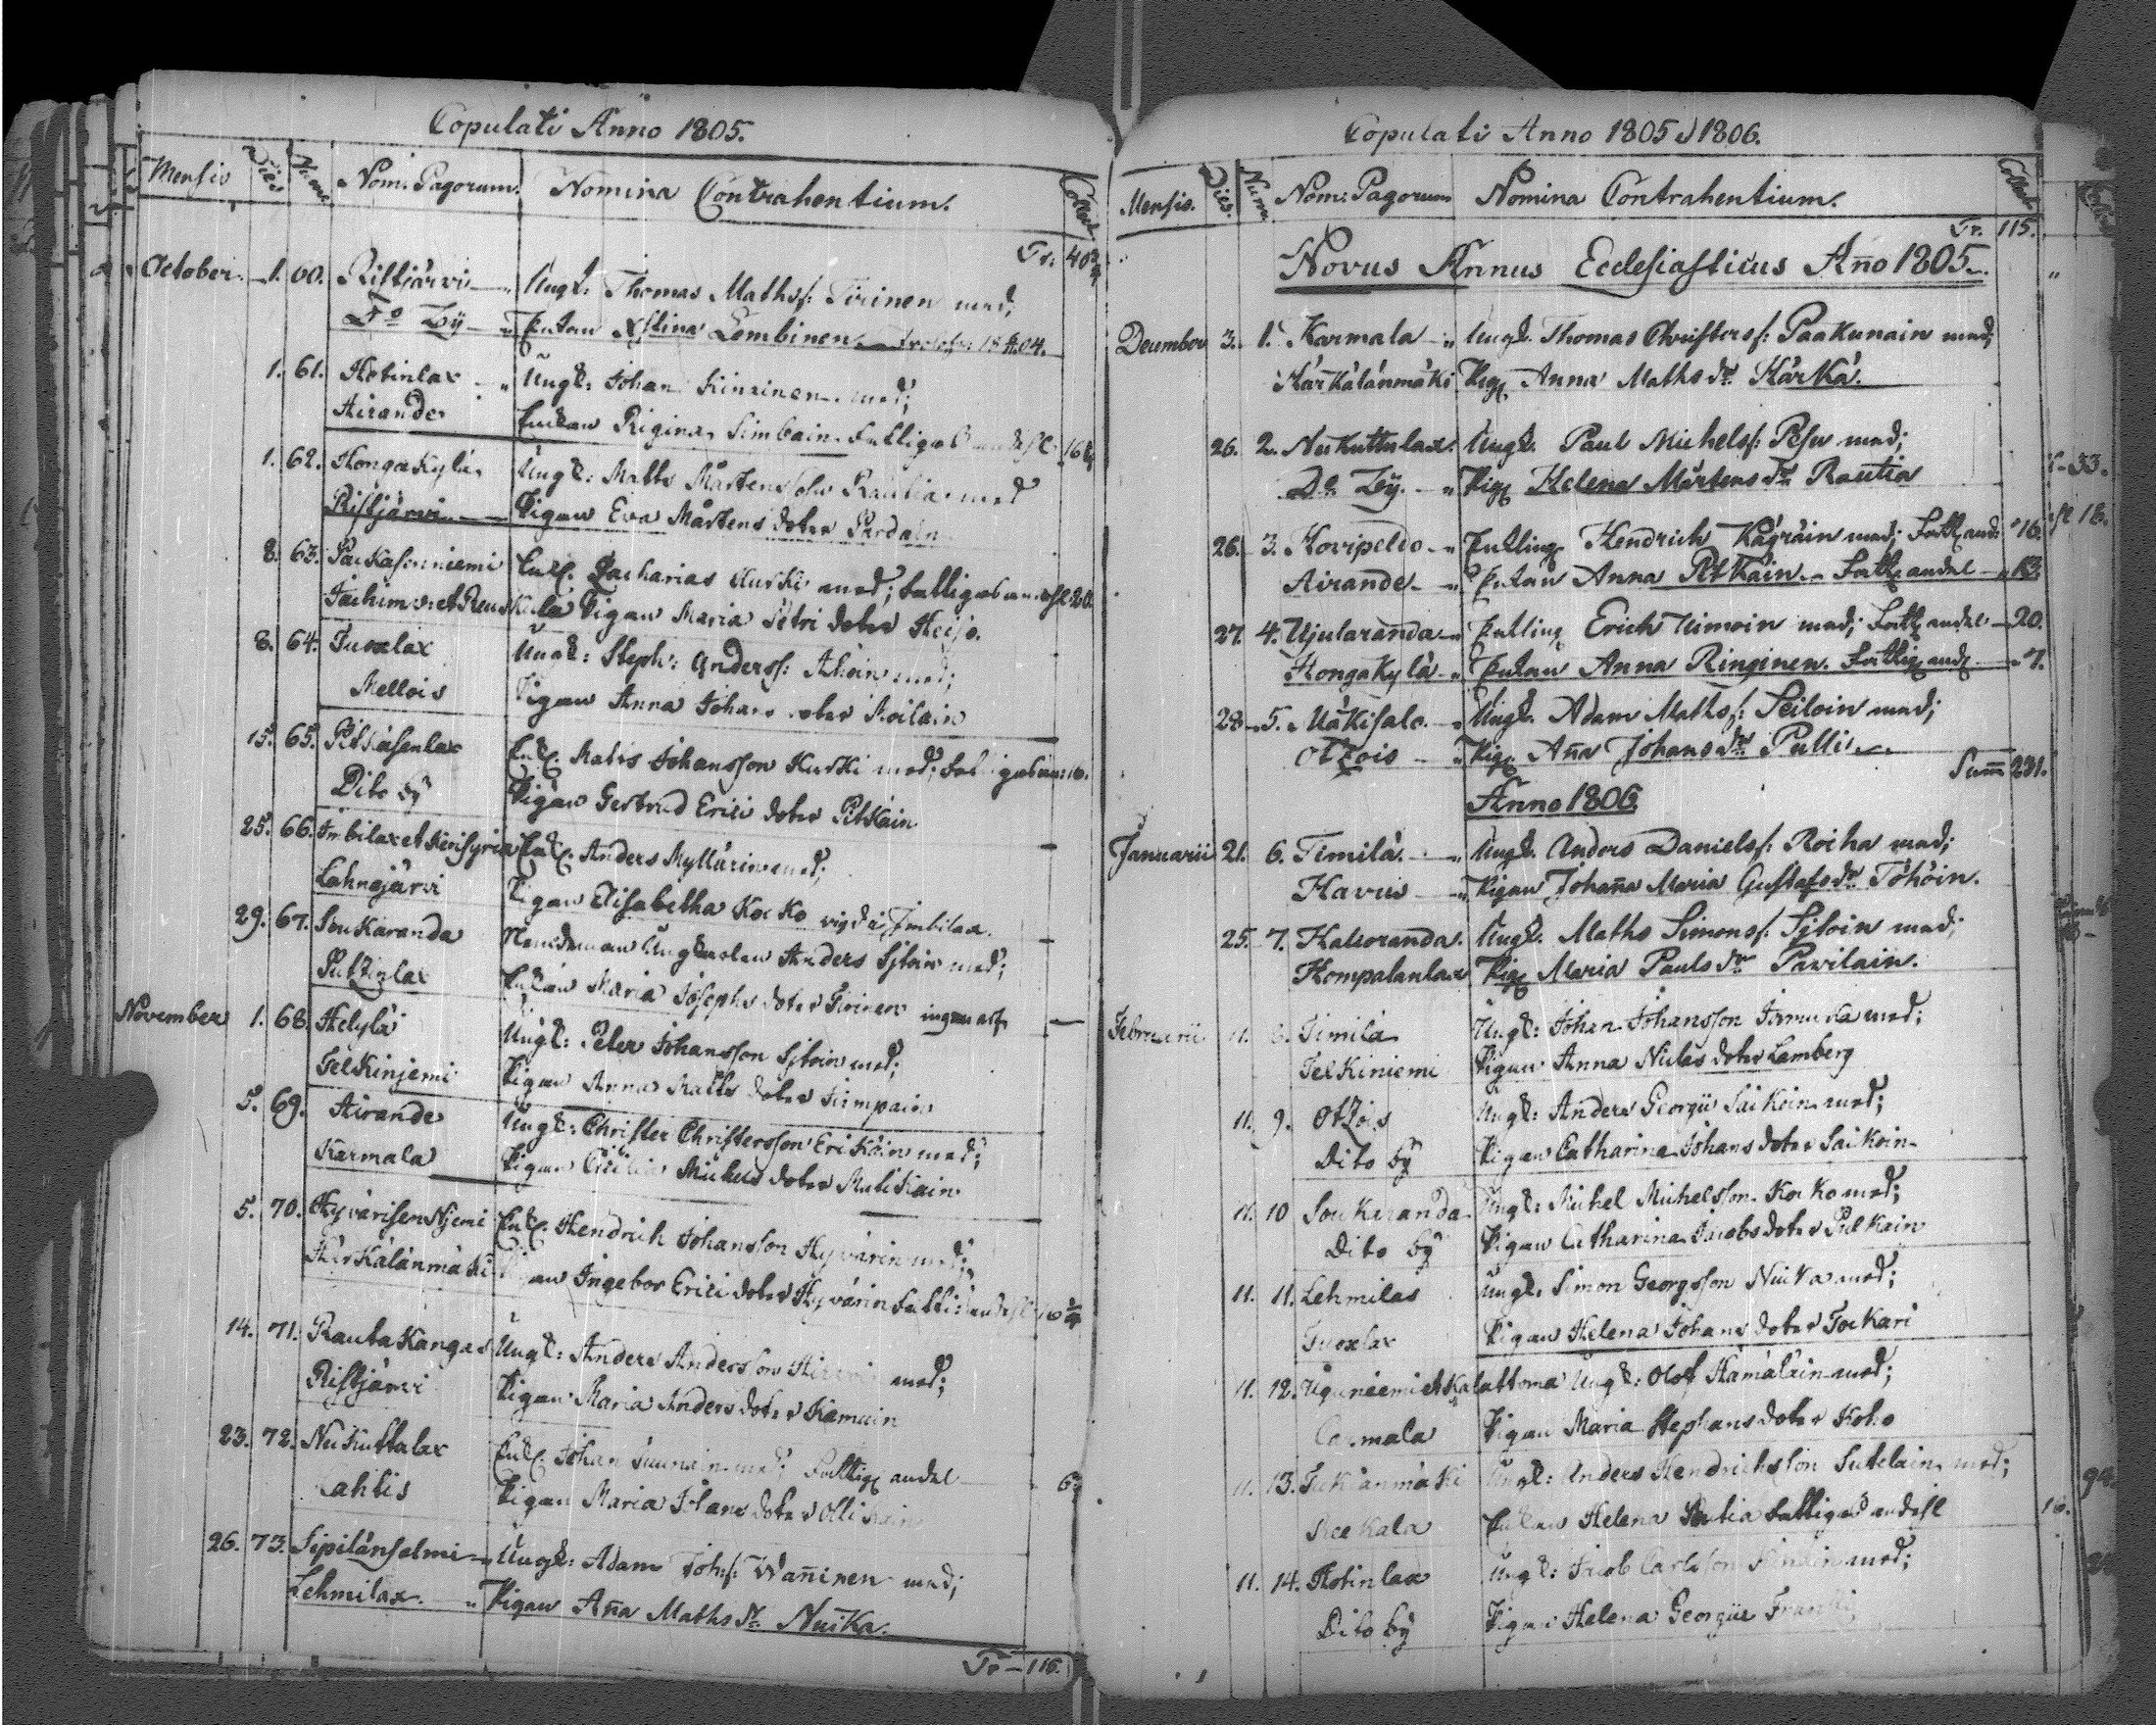 Copulati Anno 1805.
Mensis Dies Num. Nom: Pagorum. Nomina Contrahentium. Collect
Tr. 40¾
October. 1. 60. Ristjärvi Ungk: Thomas Mathss: Tirinen med;
Do By Enkan Xstina Lembinen
1. 61. Hotinlax Ungk: Johan Kinainen med;
Airande Enkan Rigina Simbain
1. 62. Hongakylä Ungk: Matts Mårtensson Rautia med
Ristjärvi Pigan Eva Mårtens doter Pärdain
8. 63. Paukasenniemi Enkl. Zacharias Kurki med; Fattigas andel 20.
Jachimv: et Reuskula Pigan Maria Petri doter Heiso.
8. 64. Tuoxlax Ungk: Steph: Anderss: Ahoin med;
Mellois Pigan Anna Johans doter Koilain
15. 65. Pitkäsenlax Enkl. Matts Johansson Kurki med;
Dito by Pigan Gertrud Erici doter Pitkäin
25. 66. Imbilax et Kirisyria Enkl. Anders Myllärin med;
Lahnajärvi Pigan Elisabetha Kocko vigd i Imbilax.
29. 67. Soukaranda Nemdeman Ungkarlen Anders Sjtoin med;
Putzinlax Enkan Maria Josephs doter Tirinen
November 1. 68. Helylä Ungk: Peter Johansson Sjtoin med;
Telkinjemi Pigan Anna Matts doter Timpain
5. 69. Airande Ungk: Christer Christersson Erikäin med;
Karmala Pigan Cicilia Michels doter Multiain
5. 70. Hyvärisen Njemi Enkl. Hendrich Johansson Hyvärin med;
Härkälänmäki Pigan Ingebor Erici doter Hyvärin
14. 71. Rautakangas Ungk: Anders Andersson med;
Ristjärvi Pigan Maria Anders doter Kämäin
23. 72. Nukuttalax Enkl. Johan Suunain med; Fattig andel 6.
Lahtis Pigan Maria Johans doter Ollikain
26. 73. Sipilänsalmi Ungk: Adam Johs: Wañinen med;
Lehmilax Pigan Aña Maths dr. Nuika.
Tr 115.
Copulati Anno 1805 & 1806.
Mensis. Dies. Num. Nom: Pagorum Nomina Contrahentium. Collect
Tr. 115.
Novus Annus Ecclesiasticus Año 1805.
December 3. 1. Karmala Ungk. Thomas Christerss: Paakunain med;
Härkälänmäki Pig. Anna Maths dr. Härkä.
26. 2. Nukuttalax Ungk. Paul Michelss: Pesu med;
Do By. Pig. Helena Mårtens dr Rautia
26. 3. Kovipeldo Enkling Hendrich Kägräin med; Fattig and: 16.
Airande Enkan Anna Pitkäin Fattig andel 13.
27. 4. Ujularanda Enkling Erich Timoin med; Fattig andel 20.
Hongakylä Enkan Anna Ringinen. Fattig and. 7.
28. 5. Mäkisalo. Ungk. Adam Mathss: Seiloin med;
Otzois Pig. Aña Johans dr Pulli.
Sum̃ 231.
Anno 1806.
Januarii 21. 6. Timilä Ungk. Anders Danielss: Rocka med;
Havus Pigan Johaña Maria Gustafs dr Töhöin.
25. 7. Kalkoranda. Ungk. Maths Simonss: Sjtoin med;
Kompalanlax Pig. Maria Pauls dr Pavilain.
Februarii 11. 8. Timila Ungk: Johan Johansson med;
Telkiniemi Pigan Anna Niclas doter Lamberg
11. 9. Otzois Ungk: Anders Georgii Saikoin med;
Dito by Pigan Catharina Johans doter Saikoin
11. 10 Soukaranda Ungk: Michel Michelsson Kocko med;
Dito by Pigan Catharina Jacobs doter Pulkain
11. 11. Lehmilax Ungk: Simon Georgsson Nuika med;
Tuoxlax Pigan Helena Johans doter Tockari
11. 12. Uguniemi et Kalattoma Ungk: Olof Hämäläin med;
Carmala Pigan Maria Stephans doter Koho
11. 13. Tukianmäki Ungk: Anders Hendrichsson Sutelain med;
Reekala Enkan Helena Rautia Fattigas andel 16.
11. 14. Hotinlax Ungk: Jacob Carlsson med;
Dito by Pigan Helena Georgii